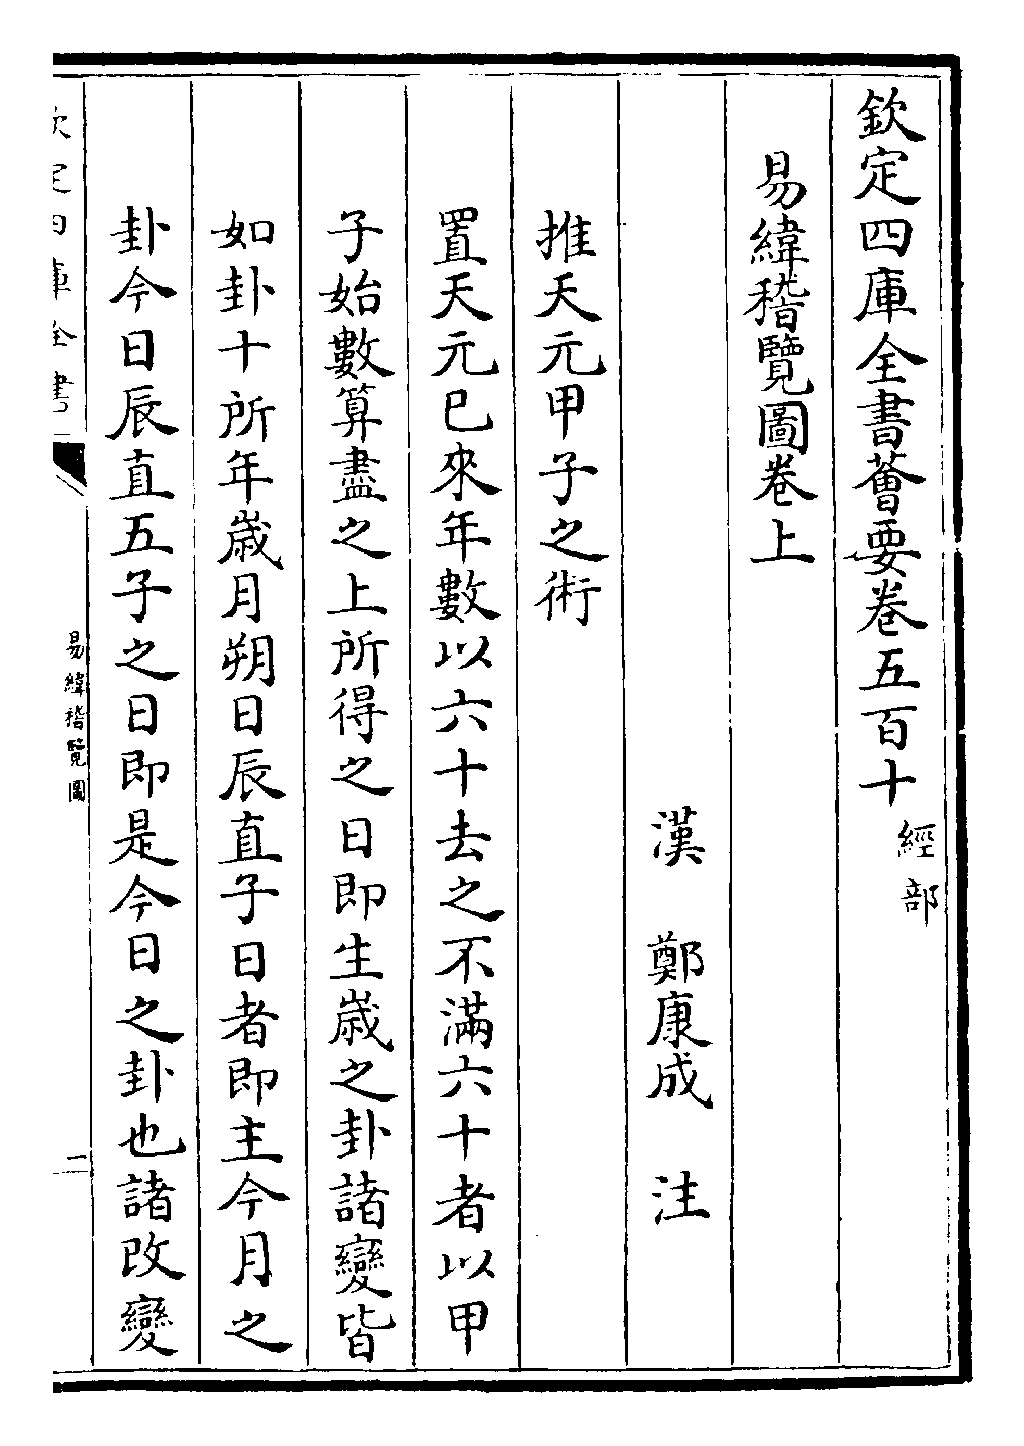 欽定四庫全書薈要卷五百十 經部
易緯稽覽圖卷上
漢 鄭康成 注
推天元甲子之術
置天元已來年數以六十去之不滿六十者以甲
子始數算盡之上所得之日即生歲之卦諸變皆
如卦十所年歲月朔日辰直子日者即主今月之
卦今日辰直五子之日即是今日之卦也諸改變
欽定四庫全書
易緯稽覽圖
一